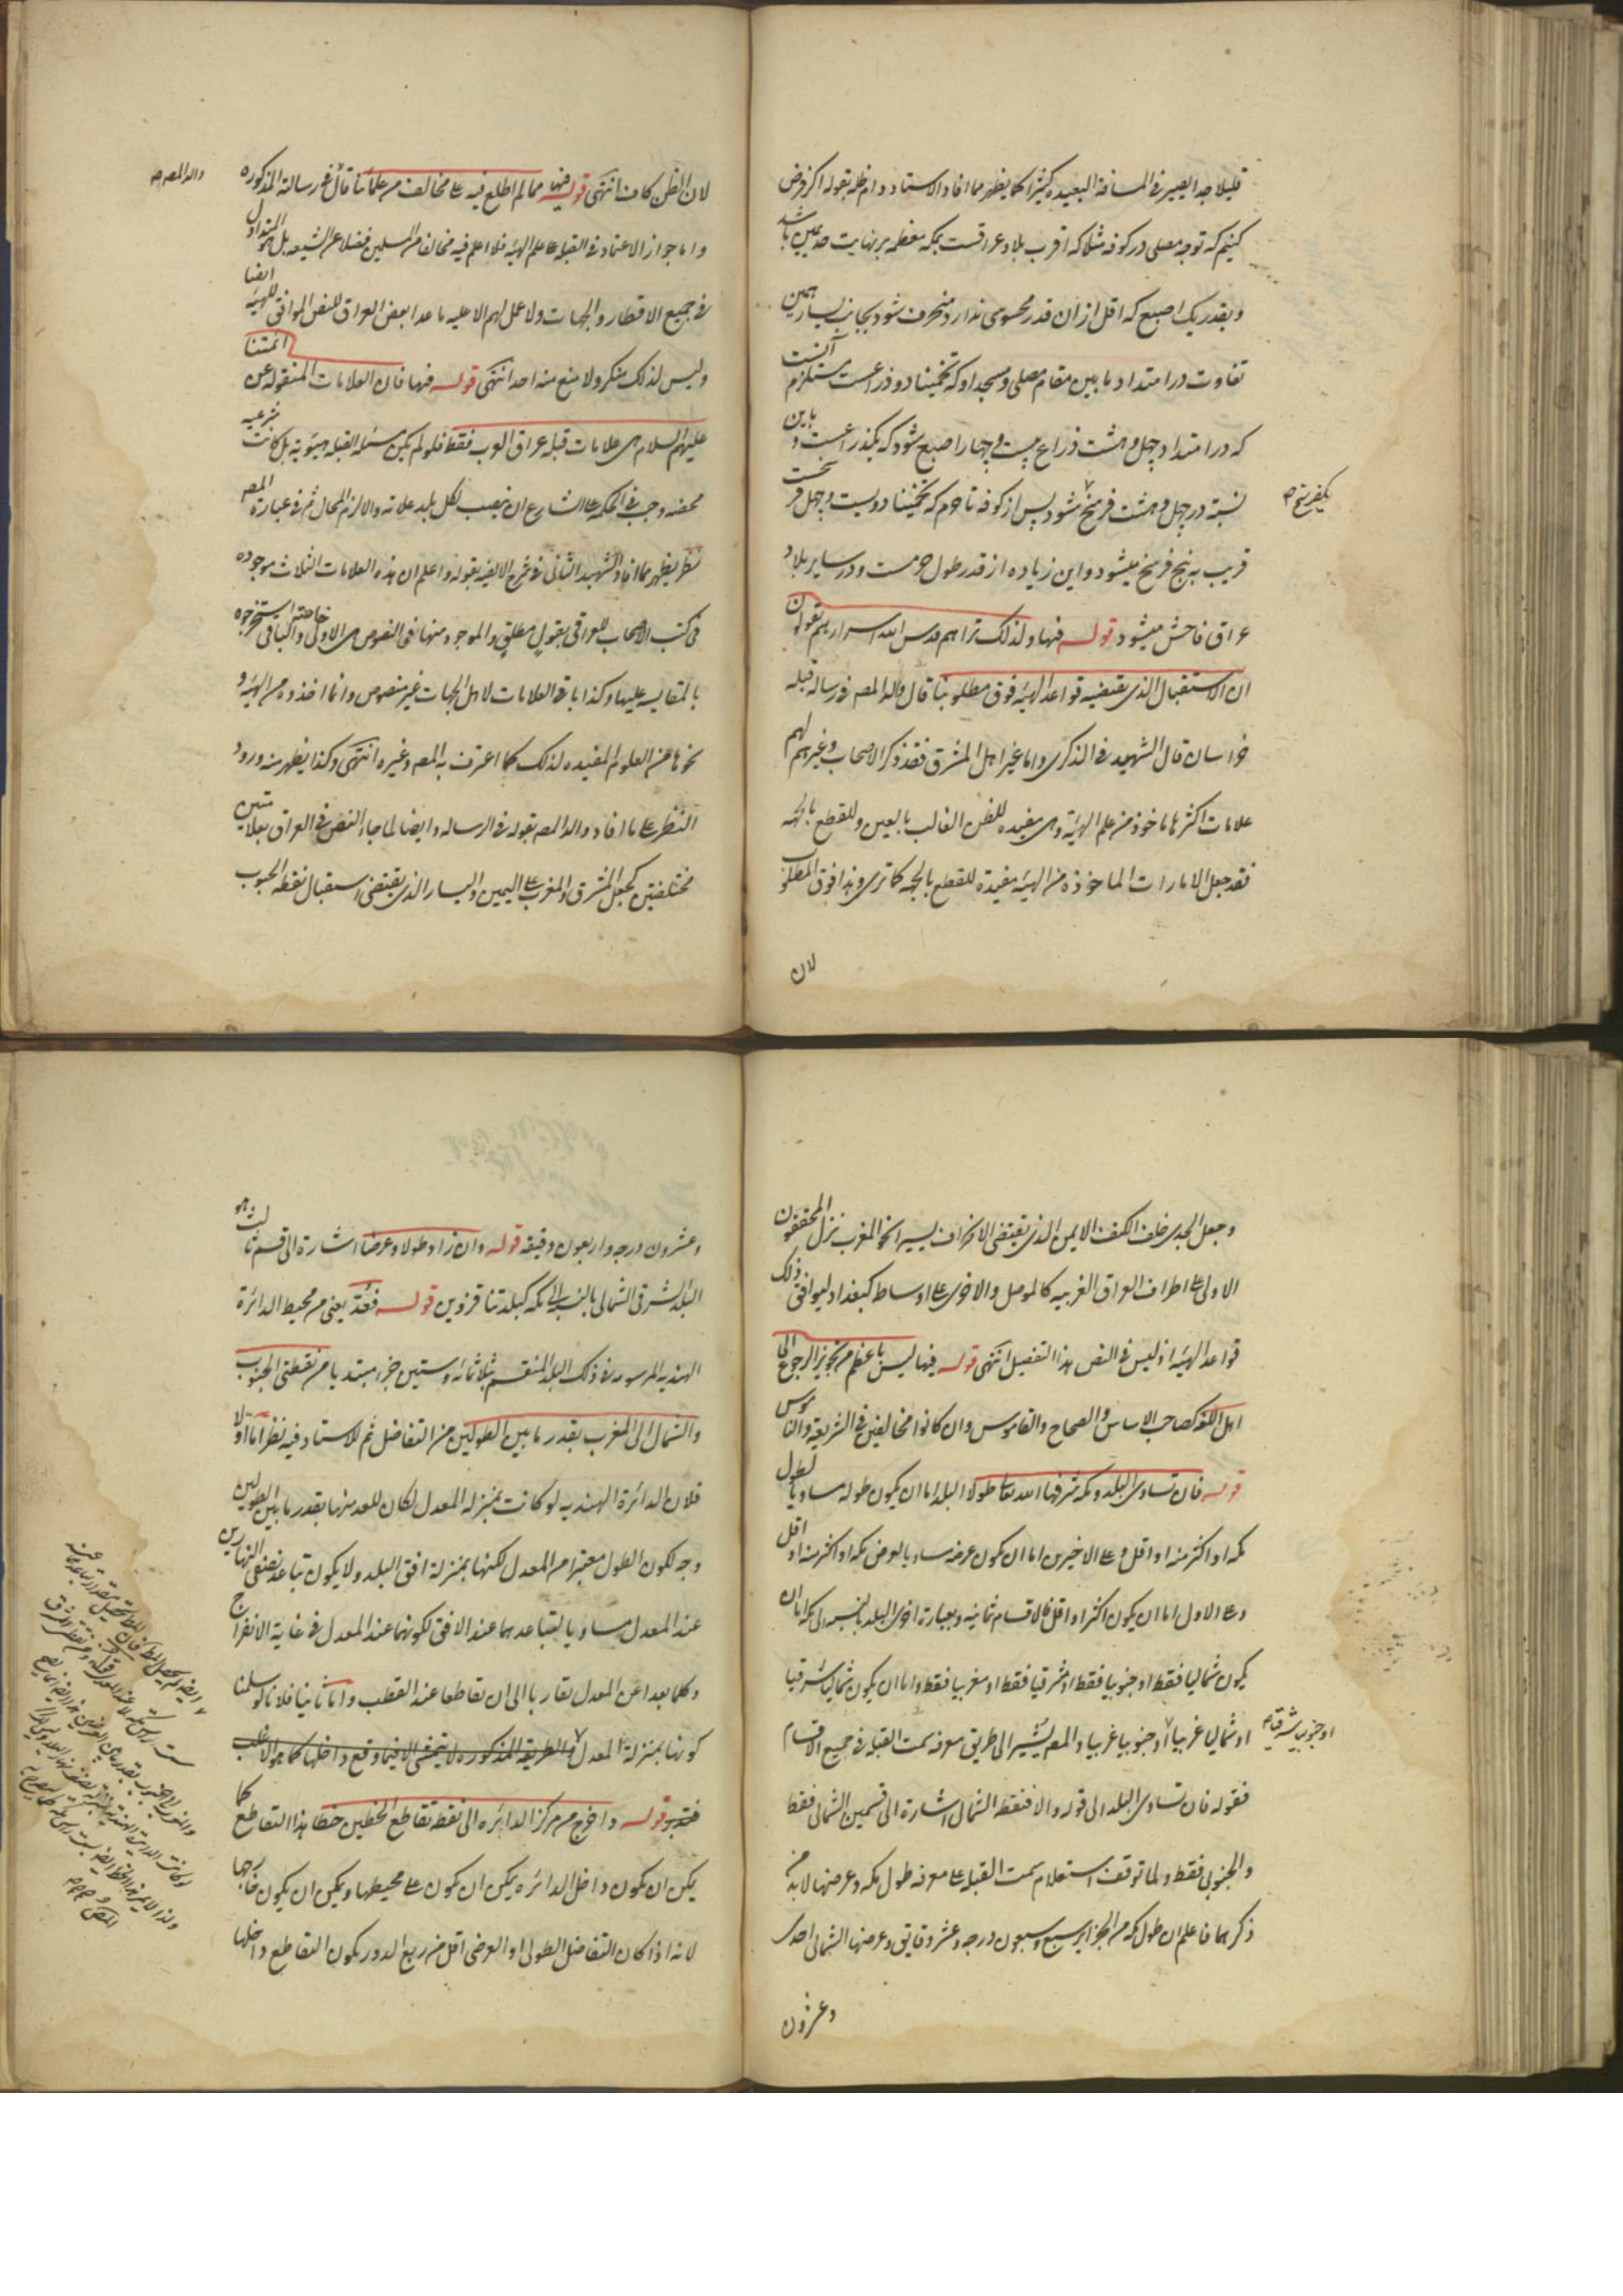 قليلا جدا يصير في المسافة البعيده كثيرا كما يظهر مما افاد الاستاد دام ظله بقوله اكر فرض
كنيم كه توجه مصلى در كوفه مثلا كه اقرب بلاد عراقست بمكه معظمه بر نهايت حد يمين باشد
وبقدر يك اصبع كه اقل از ان قدر محسوسى ندارد منحرف شود بجانب يسار همين
تفاوت در امتداد ما بين مقام مصلى ومسجد او كه تخمينا دو ذراعست مستلزم آنست
كه در امتداد چهل وهشت ذراع بيست وچهار اصبع شود كه يكذراعست و باين
نسبة در چهل وهشت فرسخ شود پس از كوفه تا حرم كه تخمينا دويست وچهل فرسخست
يكفرسخ صح
قريب به پنج فرسخ ميشود واين زياده از قدر طول حرمست ودر ساير بلاد
عراق فاحش ميشود قوله فيها ولذلك تراهم قدس الله اسرارهم يقولون
ان الاستقبال الذى يقتضيه قواعد الهيئه فوق مطلوبنا قال والد المصر في رساله قبله
خراسان قال الشهيد في الذكرى واما غير اهل المشرق فقد ذكر الاصحاب وغيرهم لهم
علامات اكثرها ماخوذ من علم الهيئة وهى مفيده للظن الغالب بالعين وللقطع بالجهه
فقد جعل الامارات الماخوذه من الهيئه مفيدة للقطع بالجهه كما ترى وهذا فوق المطلوب
لان
لان الظن كاف انتهى قوله فيها مما لم اطلع فيه على مخالف من علمائنا قال في رسالته المذكوره
والد المصر صح
واما جواز الاعتماد في القبله على علم الهيئه فلا اعلم فيه مخالفا من المسلمين فضلا عن الشيعه بل هو المتداول
في جميع الاقطار والجهات ولا عمل لهم الا عليه ما عدا بعض العراق للنص الموافق للهيئه ايضا
وليس لذلك منكر ولا منع منه احد انتهى قوله فيها فان العلامات المنقوله عن ائمتنا
عليهم السلام هى علامات قبله عراق العرب فقط فلو لم يكن مسئله القبله هيئويه بل كانت شرعيه
محضه وجب في الحكمه على الشارع ان ينصب لكل بلد علامه والا لزم المحال ثم في عبارة المصر
نظر يظهر مما افاد الشهيد الثانى في شرح الالفيه بقوله واعلم ان هذه العلامات الثلاث موجوده
في كتب الاصحاب للعراقى بقول مطلق والموجود منها في النصوص هى الاولى خاصة والباقى استخرجوه
بالمقايسه عليها وكذا باقى العلامات لاهل الجهات غير منصوص وانما اخذوه من الهيئه و
نحوها من العلوم المفيده لذلك كما اعترف به المصر وغيره انتهى وكذا يظهر منه ورود
النظر على ما افاد والد المصر بقوله في الرساله وايضا لما جاء النص في العراق بعلامتين
مختلفتين كجعل المشرق والمغرب على اليمين واليسار الذى يقتضى استقبال نقطه الجنوب
وجعل الجدى خلف الكتف الايمن الذى يقتضى الانحراف يسيرا نحو المغرب نزل المحققون
الاولى على اطراف العراق الغربيه كالموصل والاخرى على اوساطه كبغداد ليوافق ذلك
قواعد الهيئه اذ ليس في النص هذا التفصيل انتهى قوله فيها ليس باعظم من تجويز الرجوع الى
اهل اللغه كصاحب الاساس والصحاح والقاموس وان كانوا مخالفين في الشريعه والناموس
قوله فان تساوى البلد ومكه شرفها الله تعالى طولا البلد اما ان يكون طوله مساويا لطول
مكه او اكثر منه او اقل وعلى الاخيرين اما ان يكون عرضه مساويا لعرض مكه او اكثر منه او اقل
وعلى الاول اما ان يكون اكثر او اقل فالاقسام ثمانيه وبعبارة اخرى البلد بالنسبه الى مكه اما ان
يكون شماليا فقط او جنوبيا فقط او مشرقيا فقط او مغربيا فقط واما ان يكون شماليا شرقيا
او شماليا غربيا او جنوبيا غربيا والمصر يشير الى طريق معرفه سمت القبله في جميع الاقسام
او جنوبيا شرقيا صح
فقوله فان تساوى البلد الى قوله والا فنقطه الشمال اشارة الى قسمين الشمالى فقط
والجنوبى فقط ولما توقف استعلام سمت القبله على معرفه طول مكه وعرضها لا بد من
ذكرهما فاعلم ان طول مكه من الجزاير سبع وسبعون درجه وعشر دقايق وعرضها الشمالى احدى
وعشرون
وعشرون درجه واربعون دقيقه قوله وان زاد طولا وعرضا اشارة الى قسم ثالث هو
البلد الشرقى الشمالى بالنسبه الى مكه كبلدتنا قزوين قوله فعُد يعنى من محيط الدائرة
الهنديه المرسومه في ذلك البلد المنقسم بثلاثمائه وستين جزء مبتديا من نقطتى الجنوب
والشمال الى المغرب بقدر ما بين الطولين من التفاضل ثم للاستاد فيه نظر اما اولا
فلان الدائرة الهنديه لو كانت بمنزله المعدل لكان للعد منها بقدر ما بين الطولين
وجه لكون الطول معتبرا من المعدل لكنها بمنزلة افق البلد ولا يكون تباعد نصفى النهارين
عند المعدل مساويا لتباعدهما عند الافق لكونهما عند المعدل في غاية الانفراج
وكلما بعدا عن المعدل تقاربا الى ان تقاطعا عند القطب واما ثانيا فلانا لو سلمنا
كونها بمنزلة المعدل فالطريقه المذكوره لا يتمشى الا فيما وقع داخلها كما هو الاغلب
فتدبر قوله واخرج من مركز الدائره الى نقطه تقاطع الخطين خطا هذا التقاطع كما
يمكن ان يكون داخل الدائره يمكن ان يكون على محيطها ويمكن ان يكون خارجها
لانه اذا كان التفاضل الطولى او العرضى اقل من ربع الدور يكون التقاطع داخلها